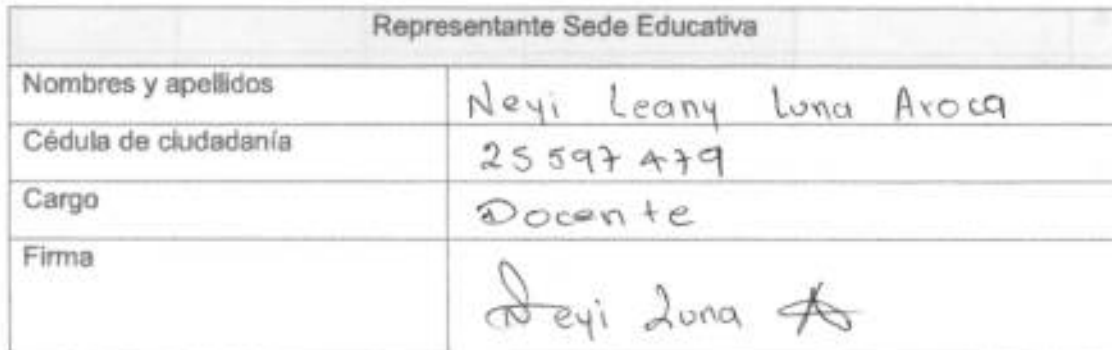 Representante Sede Educativa
Nombres y apellidos Neyi Leany Luna Aroca
Cédula de ciudadanía 25597479
Cargo Docente
Firma Neyi Luna A